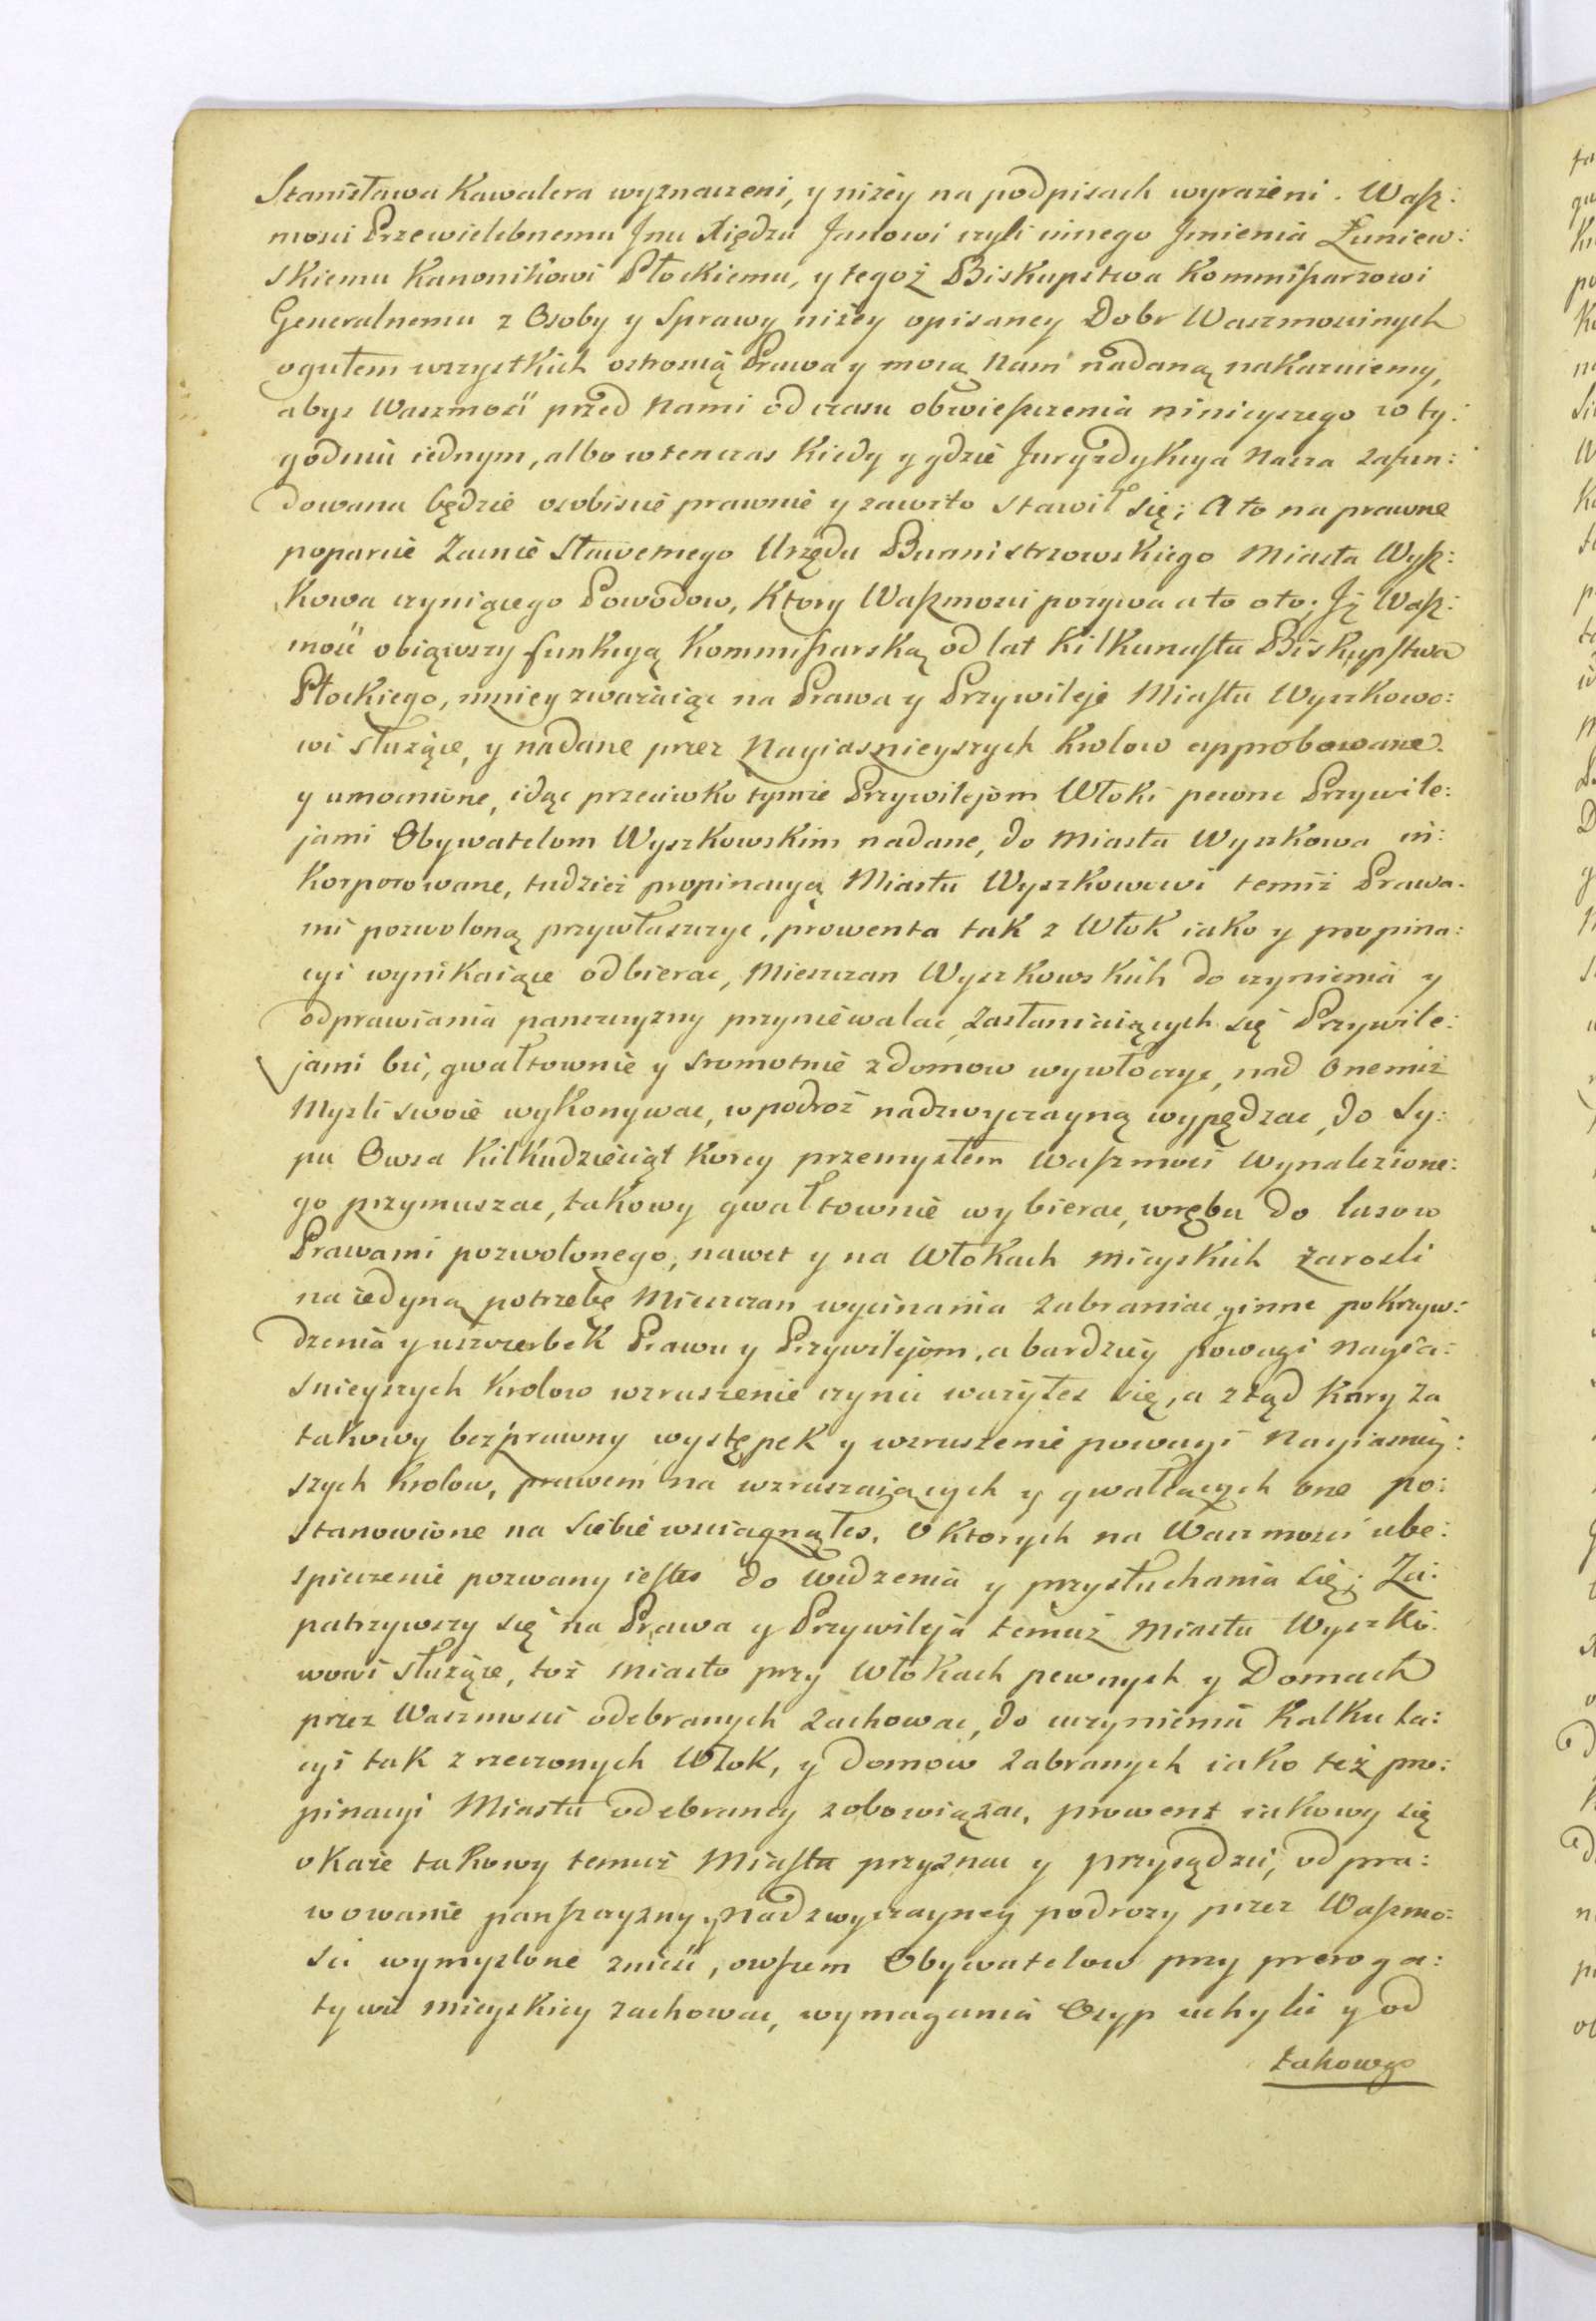 Stanisława Kawalera wyznaczeni, y niżey na podpisach wyrażeni. Waſz:
mosci Przewielebnemu Jmu Xiędzu Janowi czyli innego Jmienia Łuniew:
skiemu Kanonikowi Płockiemu, y tegoż Biskupstwa Kommiſsarzowi
Generalnemu z Osoby y Sprawy niżey opisaney Dobr Waszmoscinych
ogułem wszystkich ostroscią Prawa y mocą Nam nadaną nakazuiemy,
abys Waszmosć przed Nami od czasu obwieſzczenia ninieyszego w ty:
godniu iednym, albo wtenczas kiedy y gdzie Juryzdykcya Nasza zafun:
dowana będzie osobiscie prawnie y zawito stawił się; A to na prawne
poparcie Zacnie Sławetnego Urzędu Burmistrzowskiego Miasta Wyſz:
kowa czyniącego Powodow, Ktory Waſzmosci pozywa a to oto; Jż Waſz:
mosć obiąwszy funkcyą Kommiſsarską od lat kilkunaſtu Biskupſtwa
Płockiego, mniey zważaiąc na Prawa y Przywileje Miaſtu Wyszkowo:
wi służące, y nadane przez Nayiasznieyszych Krolow approbowane
y umocnione, idąc przeciwko tymże Przywilejom Włoki pewne Przywile:
jami Obywatelom Wyszkowskim nadane, do Miasta Wyszkowa in:
korporowane, tudzież propinacyą Miastu Wyszkowowi temiż Prawa:
mi pozwoloną przywłaszczyc, prowenta tak z Włok iako y propina:
cyi wynikaiące odbierac, Mieszczan Wyszkowskich do czynienia y
odprawiania panszczyzny przyniewalac, zasłaniaiących się Przywile:
jami bić, gwałtownie y sromotnie z domow wywłoczyc, nad onemiż
Myszli swoie wykonywac, w podroż nadzwyczayną wypędzac, do Sy:
pu Owsa kilkudziesiąt korcy przemysłem Waſzmosci wynalezione:
go przymuszac, takowy gwałtownie wybierac, wrębu do lasow
Prawami pozwolonego, nawet y na Włokach mieyskich zarosli
na iedyną potrzebę Mieszczan wycinania zabraniac, y inne pokrzyw:
dzenia y uszczerbek Prawu y Przywilejom, a bardziey powagi Nayia:
snieyszych Krolow wzruszenie czynic ważyłes się, a ztąd kary za
takowy bezprawny występek y wzruszenie powagi Nayiasniey:
szych Krolow, prawem na wzruszaiących y gwałcących one po:
stanowione na siebie wsciągnąłes. O ktorych na Waszmosci ube:
spieczenie pozwany iesſtes do widzenia y przysłuchania się; Za:
patrzywszy się na Prawa y Przywileja temuż Miastu Wyszko:
wowi służące, toż Miasto przy Włokach pewnych y Domach
przez Waszmosci odebranych zachowac, do uczynienia Kalkula:
cyi tak z rzeczonych Włok, y Domow zabranych iako też pro:
pinacyi Miastu odebraney zobowiązac, prowent iakowy się
okaże takowy temuż Miaſtu przyznac y przysądzic, odpra:
wowanie panſzczyzny y nadzwyczayney podrozy przez Waſzmo:
sci wymyslone zniesć, owſzem Obywatelow przy preroga:
tywie mieyskiey zachowac, wymagania Osyp uchylic y od
takowego